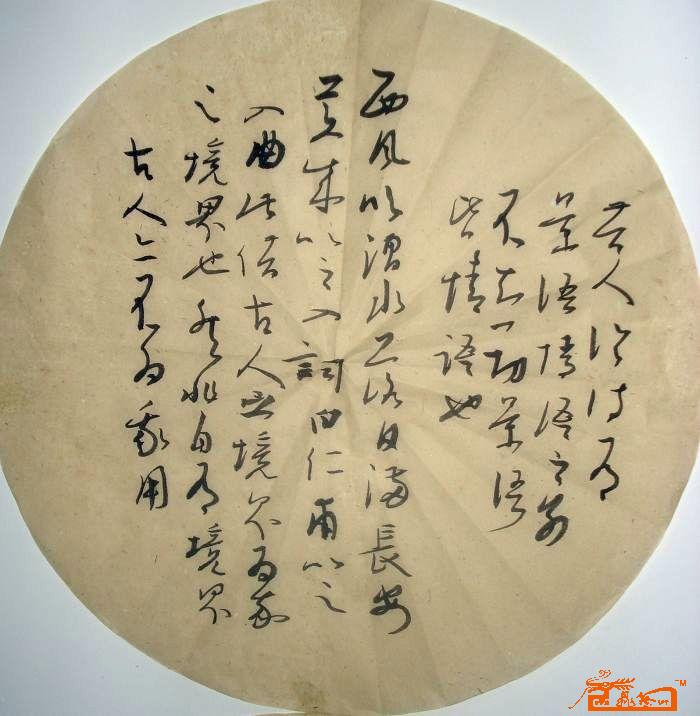 昔人論詩有
景語情語之別
不知一切景語
皆情語也
西風吹渭水落日滿長安
美成以之入詞白仁甫以之
入曲此借古人之境界為我
之境界也然非自有境界
古人亦不為我用